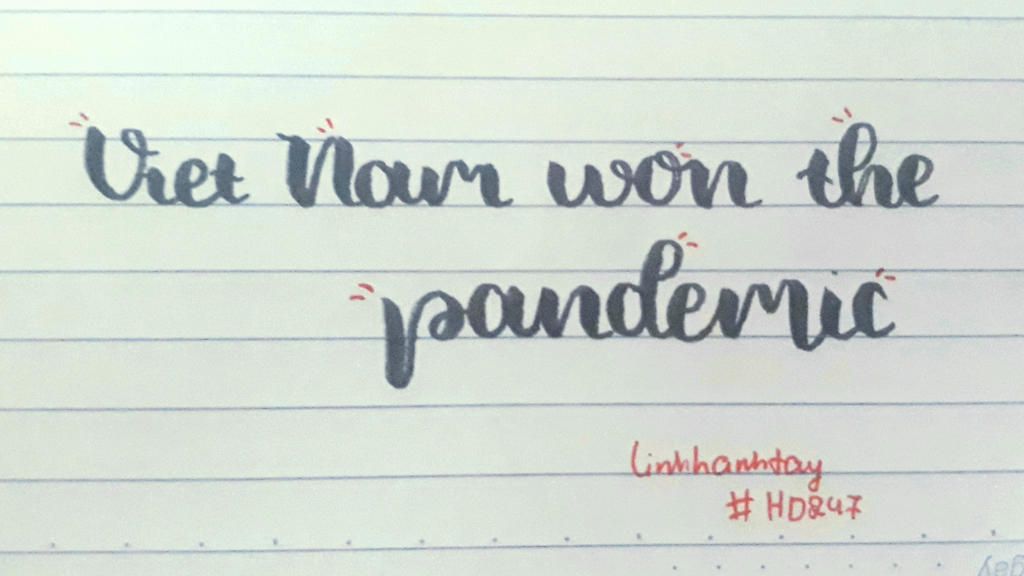 Viet Nam won the
pandemic
linhhanhtay
# HD847